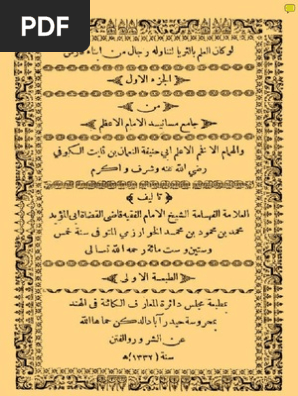 PDF
لوكان العلم بالثريا لتناوله رجال من ابناء فارس
الجزء الاول
من
جامع مسانيد الامام الاعظم
والهمام الافخر الاعلم ابي حنيفة النعمان بن ثابت الكوفي
رضي الله عنه وشرف واكرم
تاليف
العلامة الفهامة الشيخ الامام الفقيه قاضى القضاة ابى المؤيد
محمد بن محمود بن محمد الخوارزمي المتوفى سنة خمس
وستين وست مائة رحمه الله تعالى
الطبعة الاولى
بمطبعة مجلس دائرة المعارف الكائنة فى الهند
بمحروسة حيدرآباد الدكن حماها الله
عن الشرور والفتن
سنة (١٣٣٢) ه